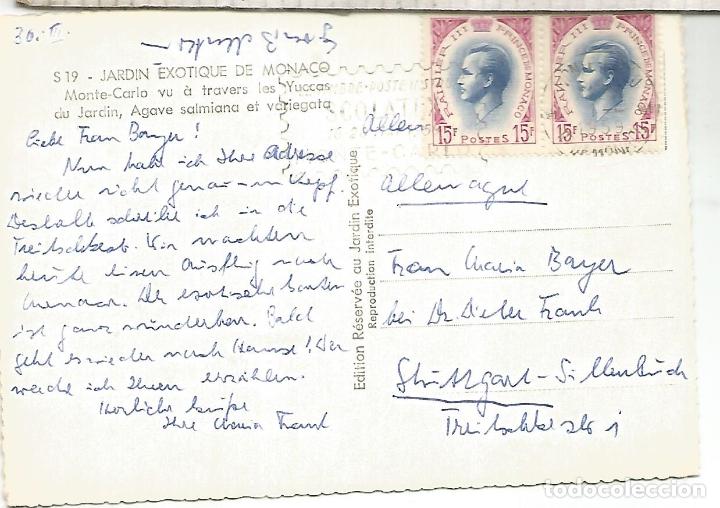 30. III.
S 19 - JARDIN EXOTIQUE DE MONACO
Monte-Carlo vu à travers les Yuccas
du Jardin, Agave salmiana et variegata
Liebe Frau Bayer!
Nun habe ich Ihre Adresse
wieder nicht genau im Kopf.
Deshalb schreibe ich in die
Treitschkestr. Wir machten
heute einen Ausflug nach
Monaco. Der exotische Garten
ist ganz wunderbar. Bald
geht es wieder nach Hause! Da
werde ich Ihnen erzählen.
Herzliche Grüße
Ihre Maria Frank
Edition Réservée au Jardin Exotique
Reproduction interdite
RAINIER III PRINCE DE MONACO
15F POSTES 15F
RAINIER III PRINCE DE MONACO
15F POSTES 15F
Allemagne
Frau Maria Bayer
bei Dr. Dieter Frank
Stuttgart-Sillenbuch
Treitschkestr 1
todocoleccion
todocoleccion.net